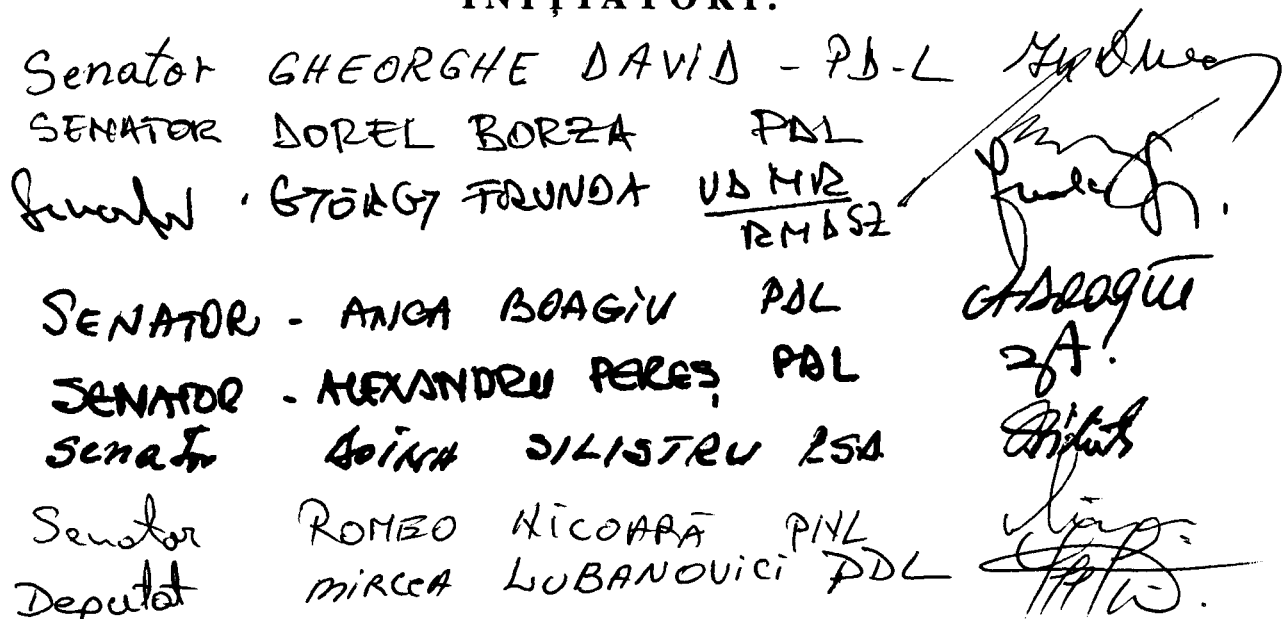 INIȚIATORI:
Senator GHEORGHE DAVID - PD-L
SENATOR DOREL BORZA PDL
Senator GYÖRGY FRUNDA UDMR
RMDSZ
SENATOR - ANCA BOAGIU PDL
SENATOR - ALEXANDRU PEREȘ PDL
Senator DOINA SILISTRU PSD
Senator ROMEO NICOARĂ PNL
Deputat MIRCEA LUBANOVICI PDL